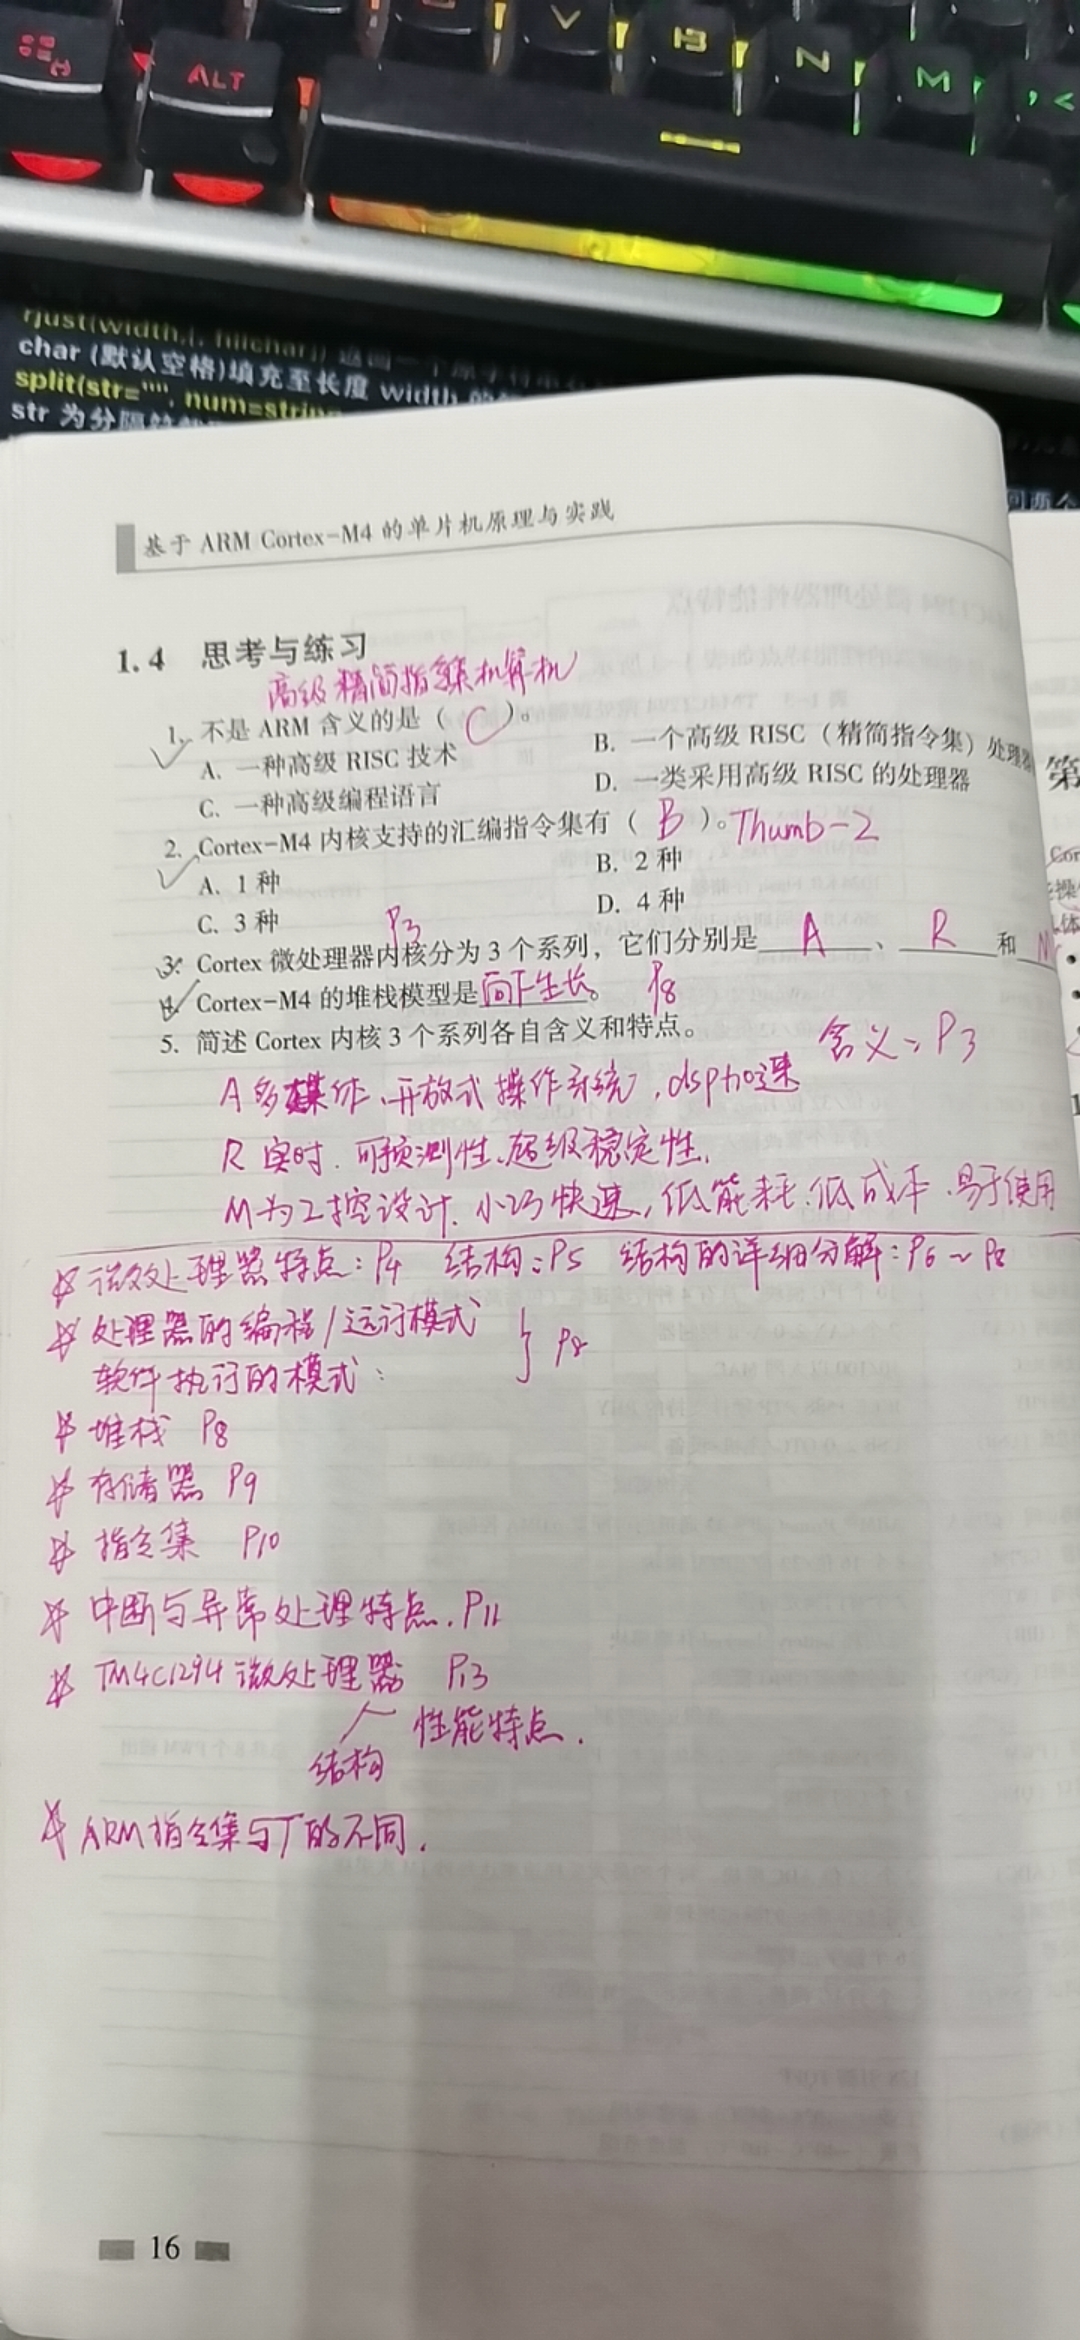 ALT
V
B
N
M
, <
char (默认空格)填充至长度 width
split(str="", num=string
str 为分隔符
基于 ARM Cortex-M4 的单片机原理与实践
1.4 思考与练习
高级精简指令集机算机
1. 不是 ARM 含义的是（ C ）。
A. 一种高级 RISC 技术
B. 一个高级 RISC（精简指令集）处理器
C. 一种高级编程语言
D. 一类采用高级 RISC 的处理器
2. Cortex-M4 内核支持的汇编指令集有（ B ）。Thumb-2
A. 1 种
B. 2 种
C. 3 种
D. 4 种
P3
3. Cortex 微处理器内核分为 3 个系列，它们分别是 A 、 R 和 M
4. Cortex-M4 的堆栈模型是向下生长。 P8
5. 简述 Cortex 内核 3 个系列各自含义和特点。 含义：P3
A 多媒体、开放式操作系统，dsp加速
R 实时、可预测性、超级稳定性、
M 为工控设计、小巧快速，低能耗、低成本、易于使用
微处理器特点：P4 结构：P5 结构的详细分解：P6～P8
处理器的编程/运行模式
软件执行的模式： } P8
堆栈 P8
存储器 P9
指令集 P10
中断与异常处理特点. P11
TM4C1294 微处理器 P13
性能特点.
结构
ARM指令集与T的不同.
16
第